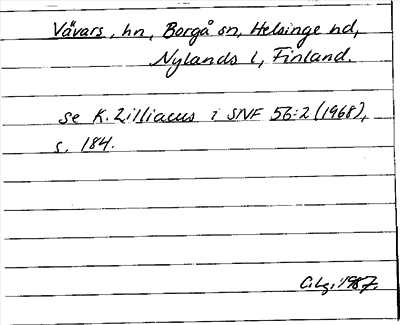 Vävars, hn, Borgå sn, Helsinge hd,
Nylands l, Finland.
se K. Zilliacus i SNF 56:2 (1968),
s. 184.
C.Lg. 1987.